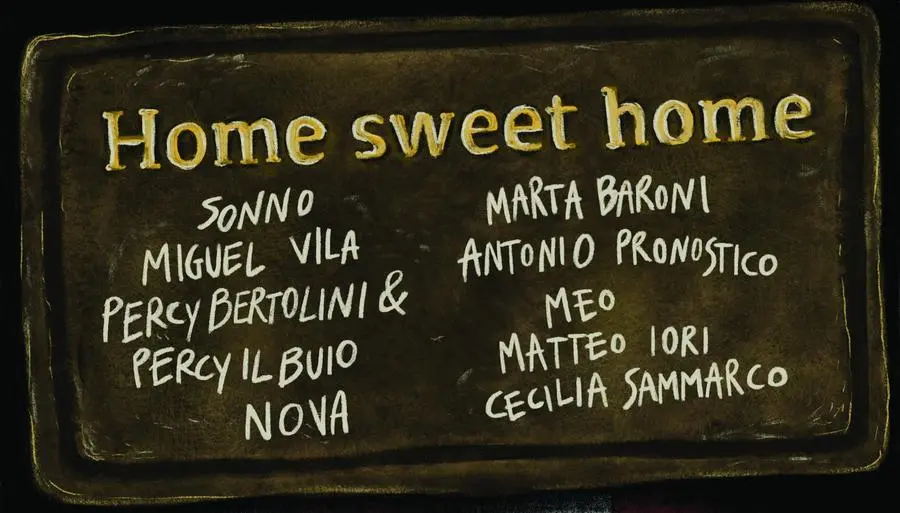 Home sweet home
SONNO
MIGUEL VILA
PERCY BERTOLINI &
PERCY IL BUIO
NOVA
MARTA BARONI
ANTONIO PRONOSTICO
MEO
MATTEO IORI
CECILIA SAMMARCO